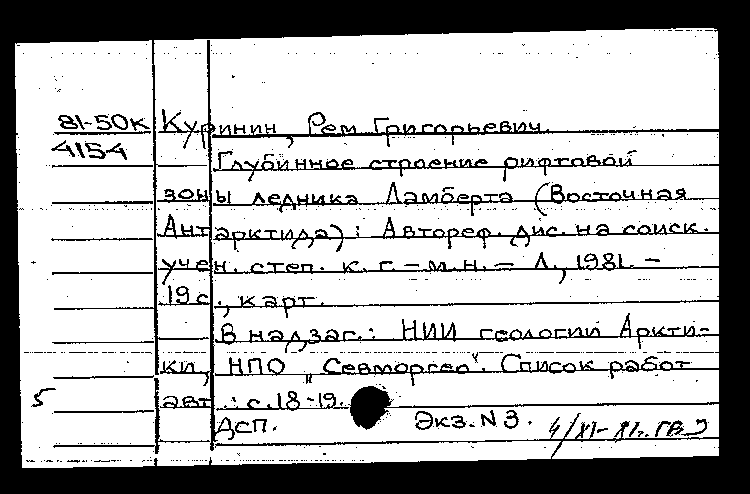 81-50к Куринин, Рем Григорьевич.
4154 Глубинное строение рифтовой
зоны ледника Ламберта (Восточная
Антарктида) : Автореф. дис. на соиск.
учен. степ. к. г.-м.н. - Л., 1981. -
19 с., карт.
В надзаг.: НИИ геологии Аркти-
ки, НПО „Севморгео". Список работ
5 авт.: с.18-19.
Дсп. Экз. N 3. 4/XI-81г.